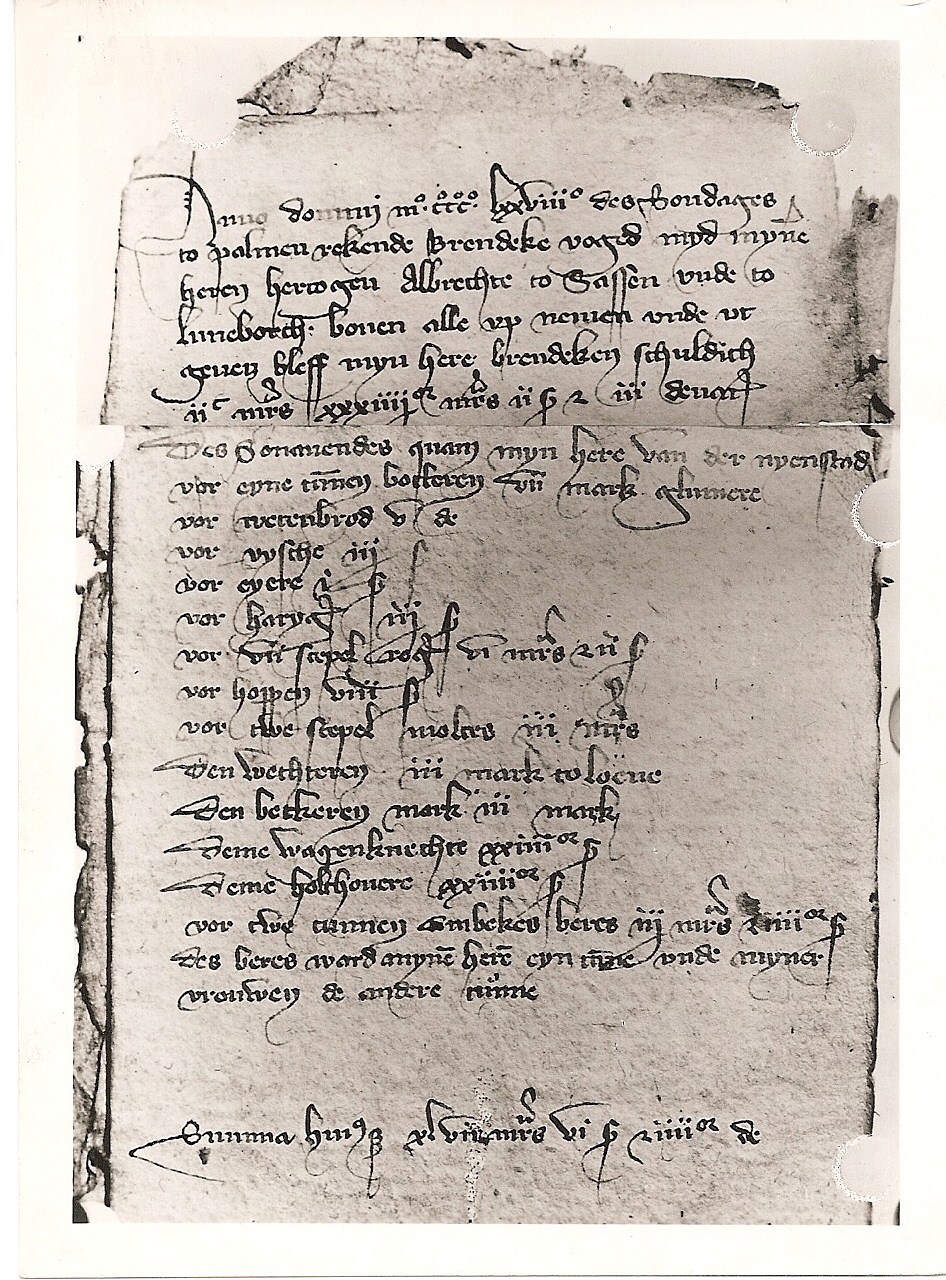 Anno domini mº ccccº lxxviiiº des Sondages
to palmen rekende Brendeke voged myd myne
heren hertogen Albrechte to Sassen vnde to
luneborch. bouen alle vp nemen vnde vt
geuen bleff myn here brendeken schuldich
iiᶜ mrs xxxiiiiᵒʳ mrs ii ꝭ & iii denar
Des Sonauendes quam myn here van der nyenstad
vor eyne tunnen botteren vii mark
vor wetenbrod v de
vor vyssche iii ꝭ
vor eyere i ꝭ
vor haryng iii ꝭ
vor vii scepel vi mrs & ii ꝭ
vor hoppen viii ꝭ
vor twe scepel moltes iii mrs
Den wechteren iii mark to lone
Den beckeren mark iii mark
Deme wagenknechte xxiiiiᵒʳ ꝭ
Deme holthouwere xxiiiiᵒʳ ꝭ
vor twe tunnen Embekes beres iii mrs & iiiiᵒʳ ꝭ
des beres ward myne here eyn tunne vnde myner
vrouwen de andere tunne
Summa huius xlvii mrs vi ꝭ & iiiiᵒʳ de